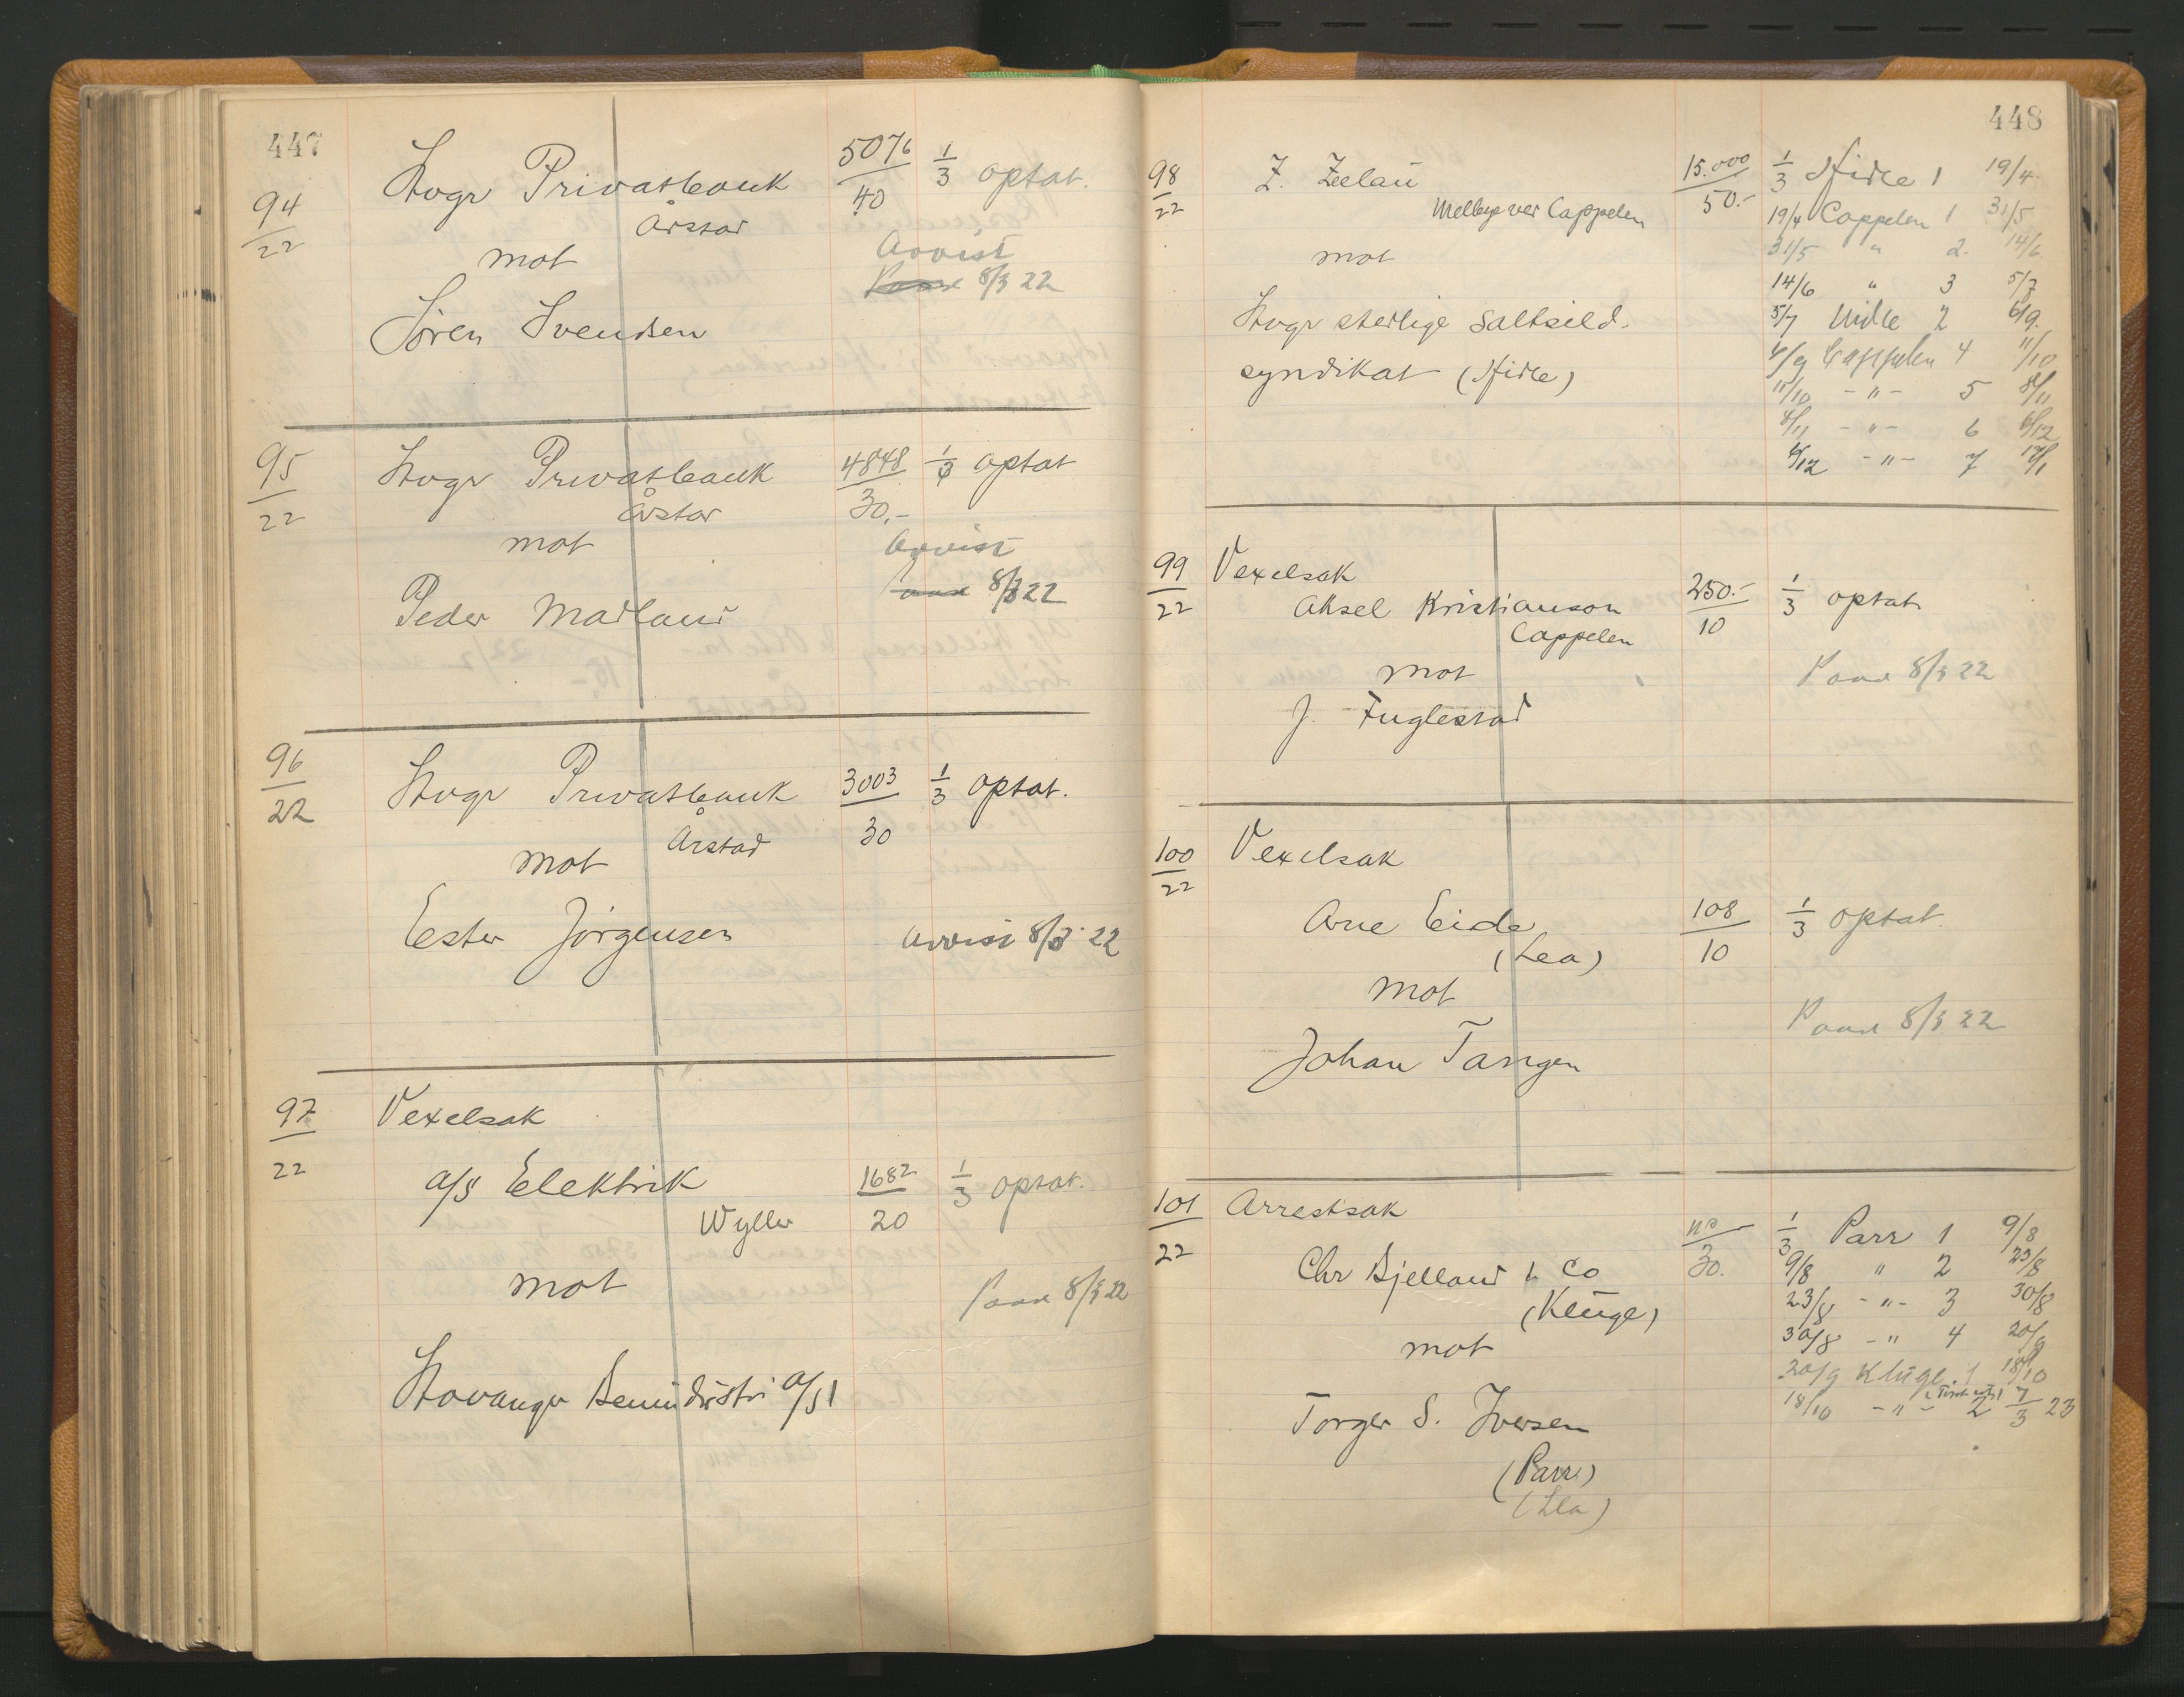 447
94/22 Stvgr Privatbank 5076/40 1/3 optat.
Årstad
mot Avvist
8/3 22
Sören Svendsen
95/22 Stvgr Privatbank 4848/30,- 1/3 optat
Årstad
mot Avvist
8/3 22
Peder Madland
96/22 Stvgr Privatbank 3003/30 1/3 optat.
Årstad
mot
Ester Jörgensen Avvist 8/3 22
97/22 Vexelsak
A/S Elektrik 1682/20 1/3 optat.
Wyller
mot Paad 8/3 22
Stavanger A/S
448
98/22 Z. Zelau 15.000/50.- 1/3 1 19/4
Melbye ved Cappelen 19/4 Cappelen 1 31/5
31/5 " 2. 14/6
mot 14/6 " 3 5/7
Stvgr sterlige Saltsild- 5/7 2 6/9.
6/9 Cappelen 4 11/10
syndikat 11/10 -"- 5 8/11
8/11 -"- 6 6/12
6/12 -"- 7 17/1
99/22 Vexelsak
Aksel Kristianson 250.-/10 1/3 optat
Cappelen
mot Paad 8/3 22
J. Fuglestad
100/22 Vexelsak
Arne Eide 108/10 1/3 optat.
(Lea)
mot
Paad 8/3 22
Johan Tangen
101/22 Arrestsak
30. 1/3 Parr 1 9/8
Chr Bjelland & Co 9/8 " 2 23/8
(Kluge) 23/8 -"- 3 30/8
mot 30/8 -" 4 20/9
20/9 Kluge 1 18/10
18/10 -"- 2 7/3 23
Torger S. Iversen
(Parr)
(Lea)